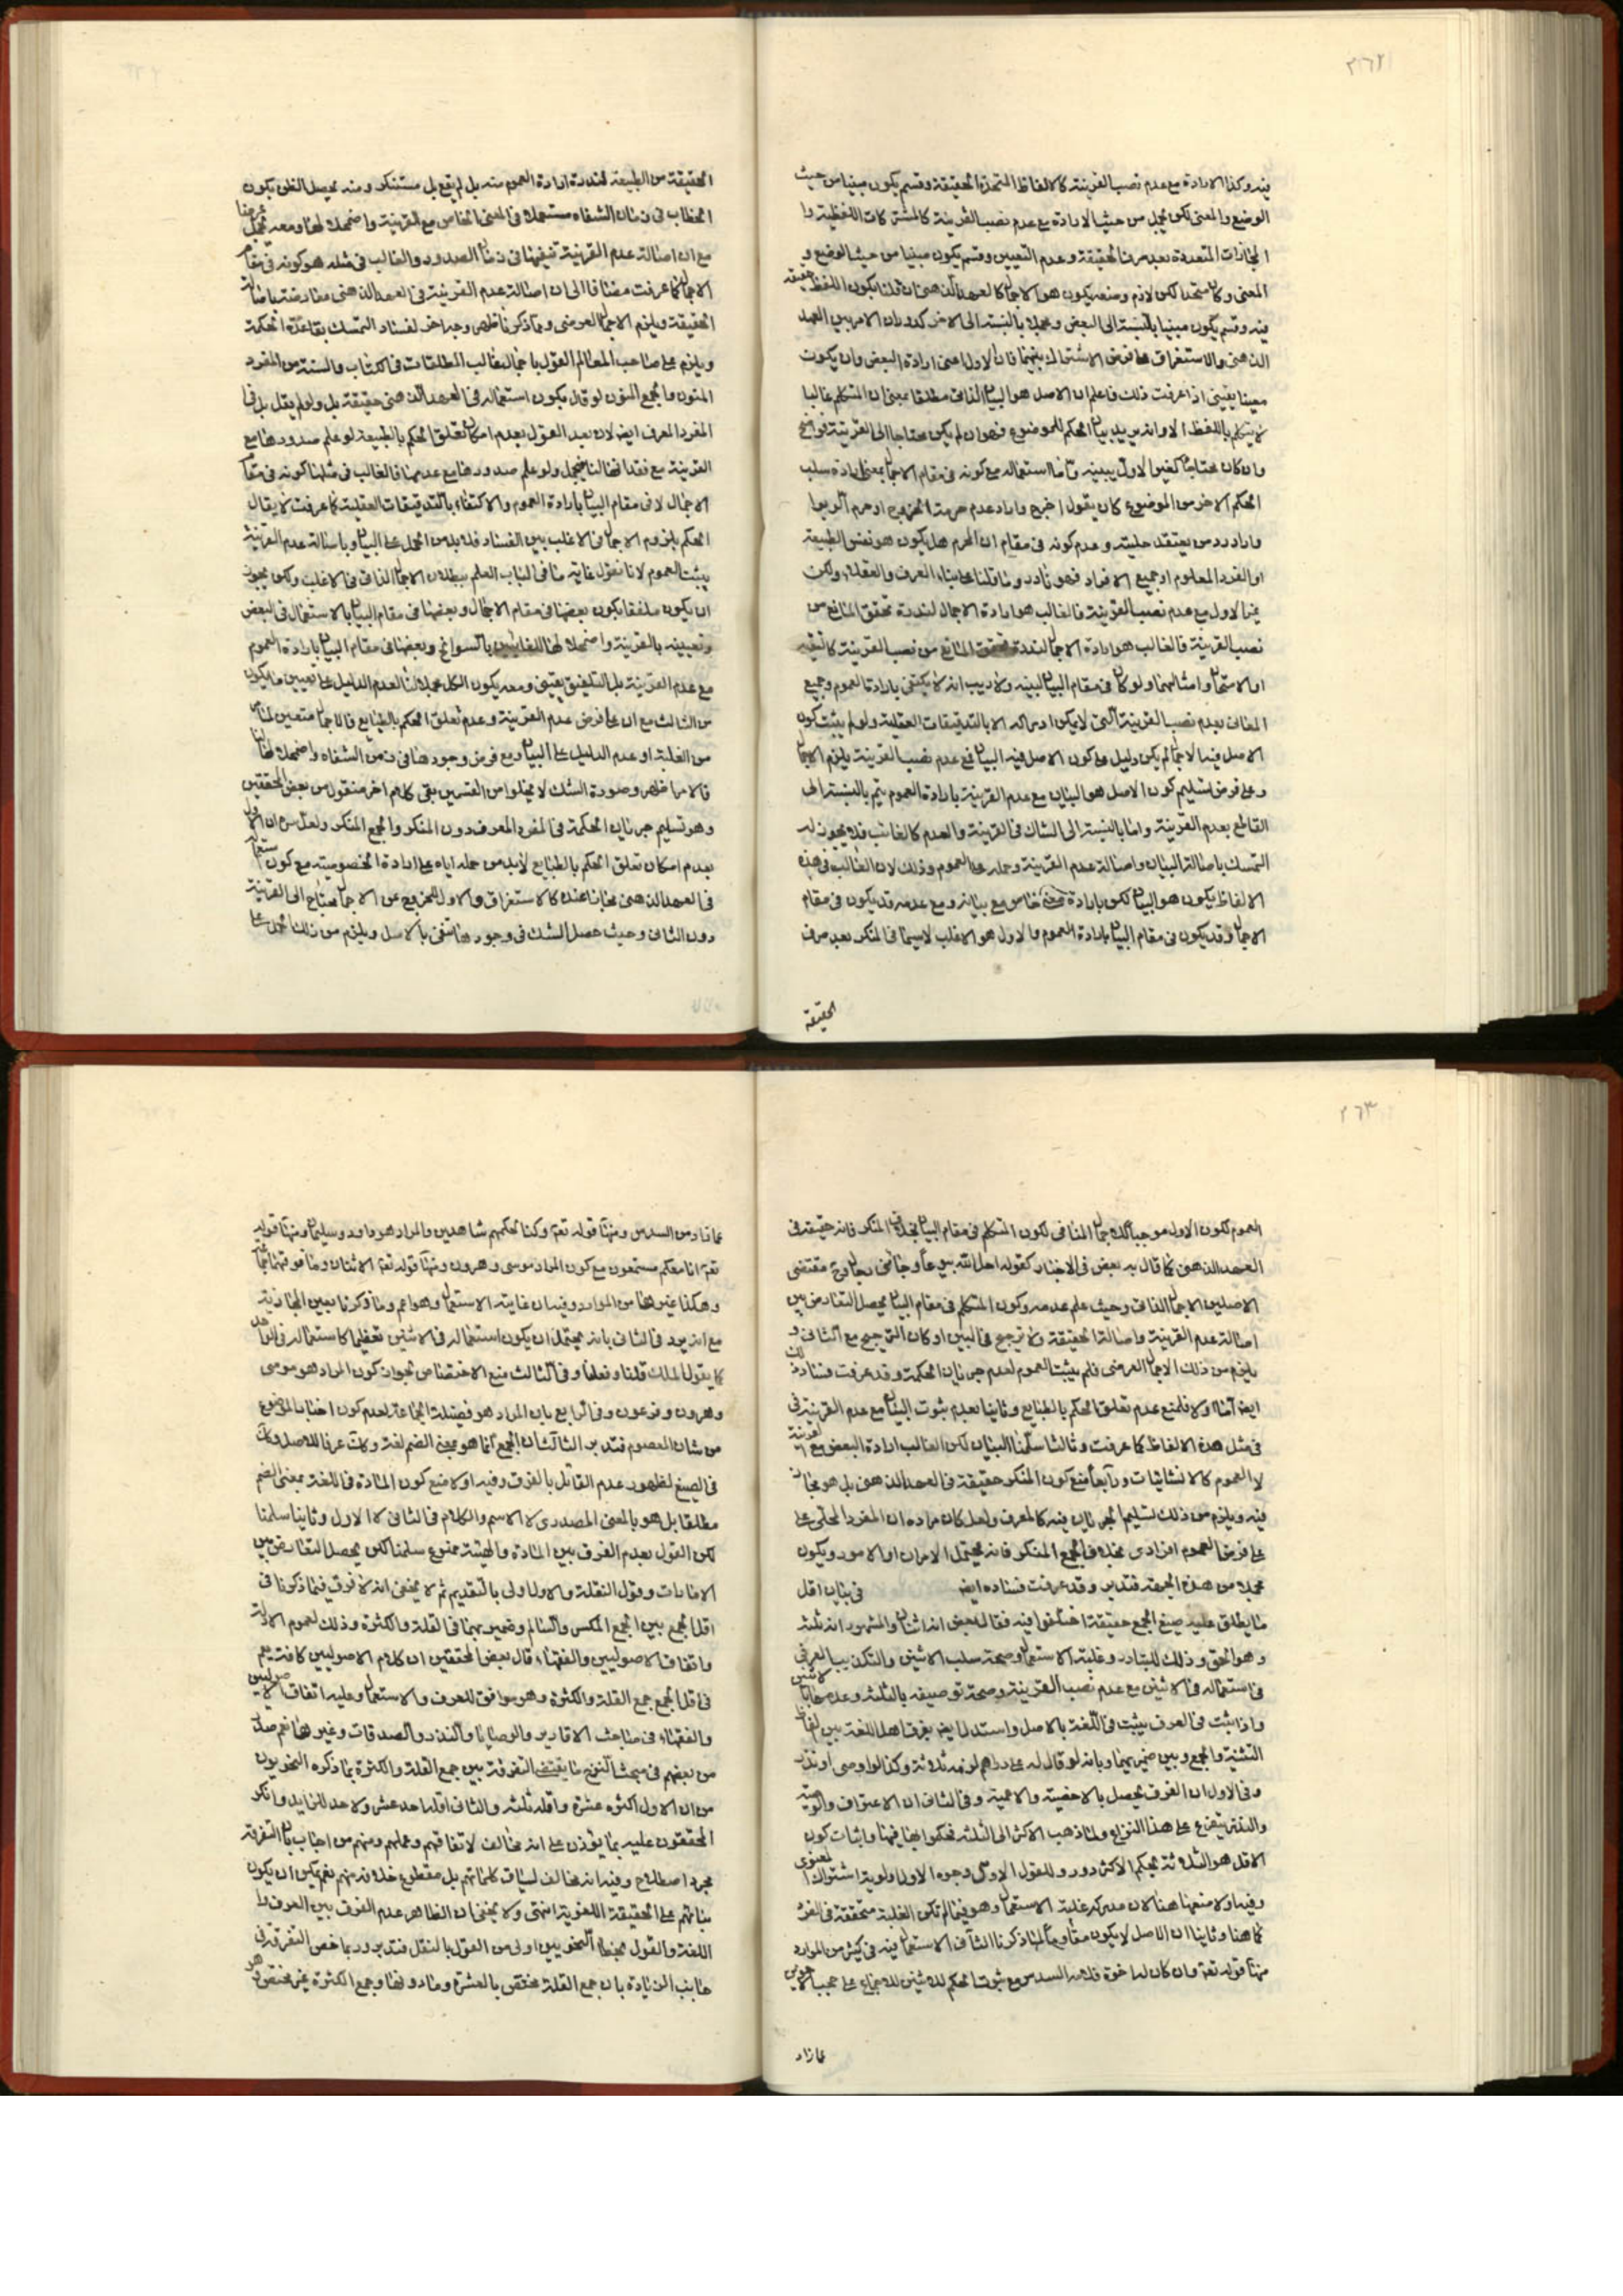 ٢٦٢
فيه وكذا الارادة مع عدم نصب القرينة كالالفاظ المتحدة الحقيقة وقسم يكون مبينا من حيث
الوضع والمعنى لكن مجمل من حيث الارادة مع عدم نصب القرينة كالمشتركات اللفظية وا
المجازات المتعددة بعد صرف الحقيقة وعدم التعيين وقسم يكون مبينا من حيث الوضع و
المعنى وكان متحدا لكن لازم وضعه يكون هو الاجمال كالعهد الذهنى ان قلنا بكون اللفظ حقيقة
فيه وقسم يكون مبينا بالنسبة الى البعض ومجملا بالنسبة الى الاخر كدوران الامر بين العهد
الذهنى والاستغراق على فرض الاشتراك بينهما فان الاول اعنى ارادة البعض وان يكون
معينا يقينى اذا عرفت ذلك فاعلم ان الاصل هو البيان الذاتى مطلقا بمعنى ان المتكلم غالبا
لا يتكلم باللفظ الا وانه يريد بيان الحكم للموضوع فهو ان لم يكن محتاجا الى القرينة فواضح
وان كان محتاجا كغير الاول يبينه واما استعماله مع كونه فى مقام الاجمال بمعنى ارادة سلب
الحكم الاخر من الموضوع كان يقول اخرج واراد عدم حرمة الخروج او حرم الربوا
واراد رد من يعتقد حليته وعدم كونه فى مقام ان المحرم هل يكون هو نفس الطبيعة
او الفرد المعلوم او جميع الافراد فهو نادر وما قلنا عليه بناء العرف والعقلاء ولكن
غير الاول مع عدم نصب القرينة فالغالب هو ارادة الاجمال لندرة تحقق المانع من
نصب القرينة فالغالب هو ارادة الاجمال لندرة تحقق المانع من نصب القرينة كالتقية
او الاستعجال وامثالهما ولو كان فى مقام البيان لبينه ولا ريب انه لا يكتفى بارادة العموم وجميع
المعانى بعدم نصب القرينة التى لا يمكن ادراكه الا بالتدقيقات العقلية ولو لم يثبت كون
الاصل فيها الاجمال لم يكن دليل على كون الاصل فيه البيان فمع عدم نصب القرينة يلزم الاجمال
وعلى فرض تسليم كون الاصل هو البيان مع عدم القرينة بارادة العموم يتم بالنسبة الى
القاطع بعدم القرينة واما بالنسبة الى الشاك فى القرينة والعدم كالغائب فلا يجوز له
التمسك باصالة البيان واصالة عدم القرينة وحمله على العموم وذلك لان الغالب فى هذه
الالفاظ يكون هو البيان لكن بارادة معنى خاص مع بيانه ومع عدمه قد يكون فى مقام
الاجمال وقد يكون فى مقام البيان بارادة العموم والاول هو الاغلب لا سيما فى المنكر بعد صرف
الحقيقة
الحقيقة من الطبيعة لندرة ارادة العموم منه بل لم يقع بل مستنكر ومنه يحصل الظن بكون
الخطاب فى زمان الشفاه مستعملا فى المعنى الخاص مع القرينة واضمحلالها ومعه مجمل عرضا
مع ان اصالة عدم القرينة تنفيها فى زمان الصدور والغالب فى مثله هو كونه فى مقام
الاجمال كما عرفت مضافا الى ان اصالة عدم القرينة فى العهد الذهنى معارضة باصالة
الحقيقة ويلزم الاجمال العرضى وبما ذكرنا ظهر وجه اخر لفساد التمسك بقاعدة الحكمة
ويلزم على صاحب المعالم القول باجمال غالب المطلقات فى الكتاب والسنة من المفرد
المنون والجمع المنون لو قال بكون استعماله فى العهد الذهنى حقيقة بل ولو لم يقل بل فى
المفرد المعرف ايضا لان بعد القول بعدم امكان تعلق الحكم بالطبيعة لو علم صدورها مع
القرينة مع فقدانها لنا فيجمل ولو علم صدورها مع عدمها فالغالب فى مثلها كونه فى مقام
الاجمال لا فى مقام البيان بارادة العموم والاكتفاء بالتدقيقات العقلية كما عرفت لا يقال
الحكم بلزوم الاجمال فى الاغلب بين الفساد فلا بد من الحمل على البيان وباصالة عدم القرينة
يثبت العموم لانا نقول غاية ما فى الباب العلم ببطلان الاجمال الذاتى فى الاغلب ولكن يجوز
ان يكون ملفقا بكون بعضها فى مقام الاجمال وبعضها فى مقام البيان بالاستعمال فى البعض
وتعيينه بالقرينة واضمحلالها للغائبين بالسوانح وبعضها فى مقام البيان بارادة العموم
مع عدم القرينة بل التلفيق يقينى ومعه يكون الكل مجملا لنا لعدم الدليل على تعيين ما يكون
من الثالث مع ان على فرض عدم القرينة وعدم تعلق الحكم بالطبايع فالاجمال متعين لما مر
من الغلبة او عدم الدليل على البيان ومع فرض وجودها فى زمن الشفاه واضمحلالها لنا
فالامر اظهر وصورة الشك لا يخلوا من القسمين بقى كلام اخر منقول من بعض المحققين
وهو تسليم جريان الحكمة فى المفرد المعرف دون المنكر والجمع المنكر ولعل سره ان الاول
بعدم امكان تعلق الحكم بالطبايع لا بد من حمله اياه على ارادة الخصوصية مع كون استعماله
فى العهد الذهنى مجازا عنده كالاستغراق والاول للخروج عن الاجمال يحتاج الى القرينة
دون الثانى وحيث حصل الشك فى وجودها تنفى بالاصل ويلزم من ذلك الحمل على
٢٦٣
العموم لكون الاول موجبا للاجمال المنافى لكون المتكلم فى مقام البيان بخلاف المنكر فانه حقيقة فى
العهد الذهنى كما قال به بعض فى الاخبار كقوله احل الله بيوعا وجائنى رجال ومقتضى
الاصلين الاجمال الذاتى وحيث علم عدمه وكون المتكلم فى مقام البيان يحصل التعارض بين
اصالة عدم القرينة واصالة الحقيقة ولا ترجيح فى البين او كان الترجيح مع الثانى و
يلزم من ذلك الاجمال العرضى فلم يثبت العموم لعدم جريان الحكمة وقد عرفت فساد ذلك
ايضا اما اولا فلمنع عدم تعلق الحكم بالطبايع وثانيا بعدم ثبوت البيان مع عدم القرينة فى
فى مثل هذه الالفاظ كما عرفت وثالثا سلمنا البيان لكن الغالب ارادة البعض مع القرينة
لا العموم كالانشائيات ورابعا منع كون المنكر حقيقة فى العهد الذهنى بل هو مجاز
فيه ويلزم من ذلك تسليم الجريان فيه كالمعرف ولعل كان مراده ان المفرد المحلى على
على فرض العموم افرادى بخلاف الجمع المنكر فانه يحتمل الامران او الامور ويكون
مجملا من هذه الجهة فتدبر وقد عرفت فساده ايضا فى بيان اقل
ما يطلق عليه صيغ الجمع حقيقة اختلفوا فيه فقال بعض انه اثنان والمشهور انه ثلثة
وهو الحق وذلك للتبادر وغلبة الاستعمال وصحة سلب الاثنين والتكذيب العرفى
فى استعماله فى الاثنين مع عدم نصب القرينة وصحة توصيفه بالثلثة وعدمها بالاثنين
واذا ثبت فى العرف يثبت فى اللغة بالاصل واستدل ايضا بفرق اهل اللغة بين الفاظ
التثنية والجمع وبين ضميريهما وبانه لو قال له على دراهم لزمه ثلاثة وكذا لو اوصى او نذر
وفى الاول ان الفرق يحصل بالاخصية والاعمية وفى الثانى ان الاعتراف والوصية
والنذر يتفرع على هذا النزاع ولما ذهب الاكثر الى الثلثة فحكموا بها فيها واثبات كون
الاقل هو الثلاثة بحكم الاكثر دور وللقول الاول وجوه الاول اولوية اشتراك المعنوى
وفيه اولا منعها هنا لان مدركه غلبة الاستعمال وهو فيما لم تكن الغلبة متحققة فى الفرد
كما هنا وثانيا ان الاصل لا يكون مقاوما لما ذكرنا الثانى الاستعمال فيه فى كثير من الموارد
منها قوله تعالى وان كان له اخوة فلامه السدس مع ثبوت الحكم للاثنين للاجماع على حجب الاخوين
عما زاد
عما زاد من السدس ومنها قوله تعه وكنا لحكمهم شاهدين والمراد هو داود وسليمان ومنها قوله
تعه انا معكم مستمعون مع كون المراد موسى وهرون ومنها قوله تعه الاثنان وما فوقهما جماعة
وهكذا غيرها من الموارد وفيه ان غاية الاستعمال وهو اعم وما ذكرنا يعين المجازية
مع انه يرد فى الثانى بانه يحتمل ان يكون استعماله فى الاثنين تعظيما كاستعماله فى الواحد
كما يقول الملك قلنا وفعلنا وفى الثالث منع الاختصاص لجواز كون المراد هو موسى
وهرون وفرعون وفى الرابع بان المراد هو فضيلة الجماعة لعدم كون اخبار الموضوع
من شان المعصوم فتدبر الثالث ان الجمع انما هو بمعنى الضم لغة وكذا عرفا للاصل وكذا
فى الصيغ لظهور عدم القائل بالفرق وفيه اولا منع كون المادة فى اللغة بمعنى الضم
مطلقا بل هو بالمعنى المصدرى لا الاسم والكلام فى الثانى لا الاول وثانيا سلمنا
لكن القول بعدم الفرق بين المادة والهيئة ممنوع سلمنا لكن يحصل التعارض بين
الامارات وقول النقلة والاول اولى بالتقديم ثم لا يخفى انه لا فرق فيما ذكرنا فى
اقل الجمع بين الجمع المكسر والسالم وضميريهما فى القلة والكثرة وذلك لعموم الادلة
واتفاق الاصوليين والفقهاء قال بعض المحققين ان كلام الاصوليين كافة يعم
فى اقل الجمع جمع القلة والكثرة وهو موافق للعرف والاستعمال وعليه اتفاق الاصوليين
والفقهاء فى مباحث الاقارير والوصايا والنذر والصدقات وغيرها نعم صدر
من بعضهم فى مبحث النزح ما يقتضى التفرقة بين جمع القلة والكثرة بما ذكره النحويون
من ان الاول اكثره عشرة واقله ثلثة والثانى اقله احد عشر ولا حد للزايد وانكر
المحققون عليه بما يؤذن على انه مخالف لاتفاقهم وعملهم ومنهم من اجاب بان التفرقة
مجرد اصطلاح وفيه انه مخالف لسياق كلماتهم بل مقطوع خلافه منهم نعم يمكن ان يكون
بنائهم على الحقيقة اللغوية انتهى ولا يخفى ان الظاهر عدم الفرق بين العرف وا
اللغة والقول بخطاء النحويين اولى من القول بالنقل فتدبر وربما خص التفرقة فى
جانب الزيادة بان جمع القلة مختص بالعشرة وما دونها وجمع الكثرة غير مختص